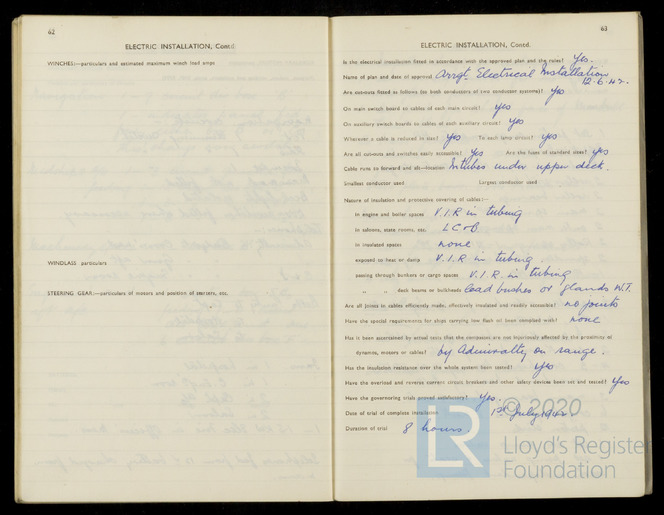 62
ELECTRIC INSTALLATION, Contd.
WINCHES:—particulars and estimated maximum winch load amps
WINDLASS particulars
STEERING GEAR:—particulars of motors and position of starters, etc.
63
ELECTRIC INSTALLATION, Contd.
Is the electrical installation fitted in accordance with the approved plan and the rules? Yes.
Name of plan and date of approval Arrgt. Electrical Installation
12-6-42.
Are cut-outs fitted as follows (on both conductors of two conductor systems)? yes
On main switch board to cables of each main circuit? yes
On auxiliary switch boards to cables of each auxiliary circuit? yes
Wherever a cable is reduced in size? yes To each lamp circuit? yes
Are all cut-outs and switches easily accessible? yes Are the fuses of standard sizes? yes
Cable runs to forward and aft—location In tubes under upper deck.
Smallest conductor used Largest conductor used
Nature of insulation and protective covering of cables:—
in engine and boiler spaces V.I.R in tubing
in saloons, state rooms, etc. L C
in insulated spaces none
exposed to heat or damp V.I.R in tubing.
passing through bunkers or cargo spaces V.I.R in tubing
„ „ deck beams or bulkheads lead bushes or glands W.T.
Are all joints in cables efficiently made, effectively insulated and readily accessible? no joints
Have the special requirements for ships carrying low flash oil been complied with? none
Has it been ascertained by actual tests that the compasses are not injuriously affected by the proximity of
dynamos, motors or cables? by Admiralty on range.
Has the insulation resistance over the whole system been tested? yes
Have the overload and reverse current circuit breakers and other safety devices been set and tested? yes
Have the governoring trials proved satisfactory? yes.
Date of trial of complete installation 1st July 1942.
Duration of trial 8 hours.
LR
© 2020
Lloyd's Register
Foundation